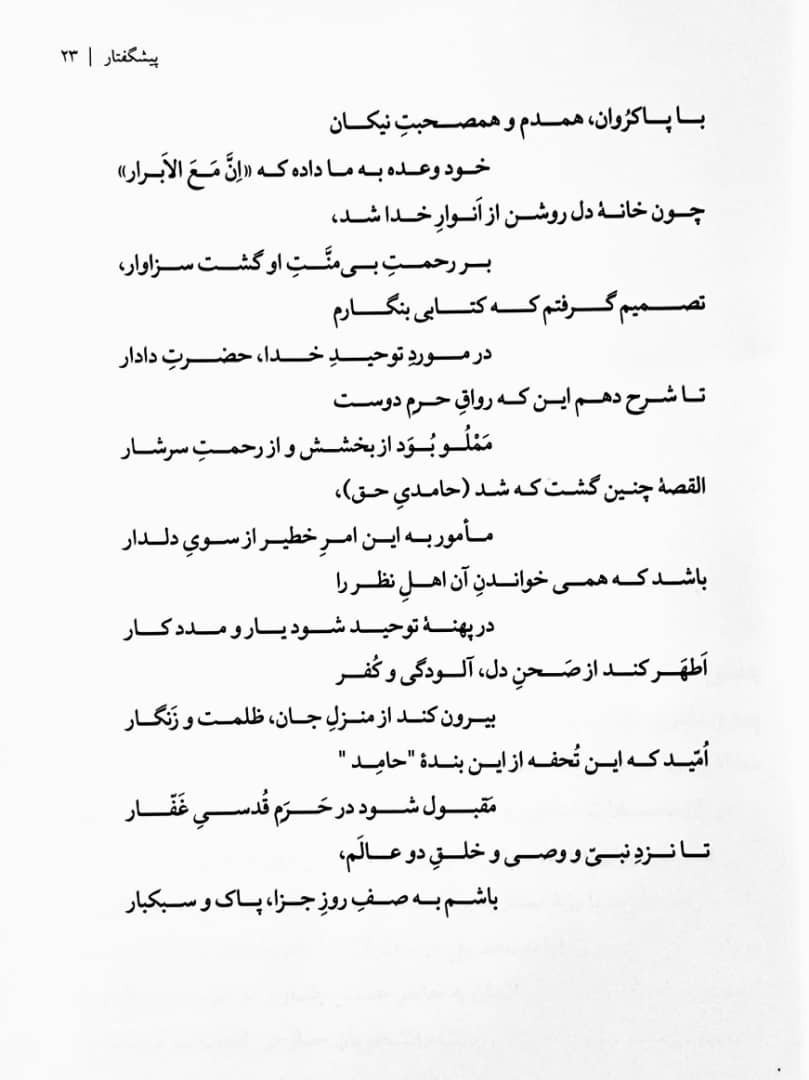 پیشگفتار | ۲۳
با پاکرُوان، همدم و همصحبتِ نیکان
خود وعده به ما داده که «اِنَّ مَعَ الاَبرار»
چون خانهٔ دل روشن از اَنوارِ خدا شد،
بر رحمتِ بی‌منَّتِ او گشت سزاوار،
تصمیم گرفتم که کتابی بنگارم
در موردِ توحیدِ خدا، حضرتِ دادار
تا شرح دهم این که رواقِ حرمِ دوست
مَمْلُو بُوَد از بخشش و از رحمتِ سرشار
القصهٔ چنین گشت که شد (حامدیِ حق)،
مأمور به این امرِ خطیر از سویِ دلدار
باشد که همی خواندنِ آن اهلِ نظر را
در پهنهٔ توحید شود یار و مدد کار
اَطهَر کند از صَحنِ دل، آلودگی و کُفر
بیرون کند از منزلِ جان، ظلمت و زَنگار
اُمّید که این تُحفه از این بندهٔ "حامِد "
مَقبول شود در حَرَمِ قُدسیِ غَفّار
تا نزدِ نبیّ و وصی و خلقِ دو عالَم،
باشم به صفِ روزِ جزا، پاک و سبکبار